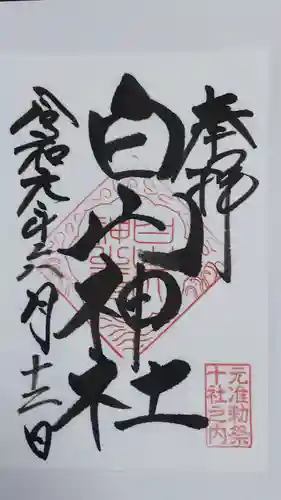 奉拝
白山神社
令和元年六月十二日
白山
神社
元准勅祭
十社之内